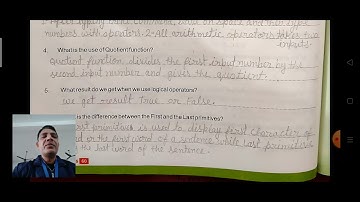 numbers with operators. 2-All arithmetic operators takes two
inputs.
4. What is the use of Quotient function?
Quotient function divides the first input number by the
second input number and gives the quotient.
5. What result do we get when we use logical operators?
We get result True or False.
is the difference between the First and the Last primitives?
primitives is used to display first character of
or the first word of a sentence while last primitives
the last word of the sentence.
60